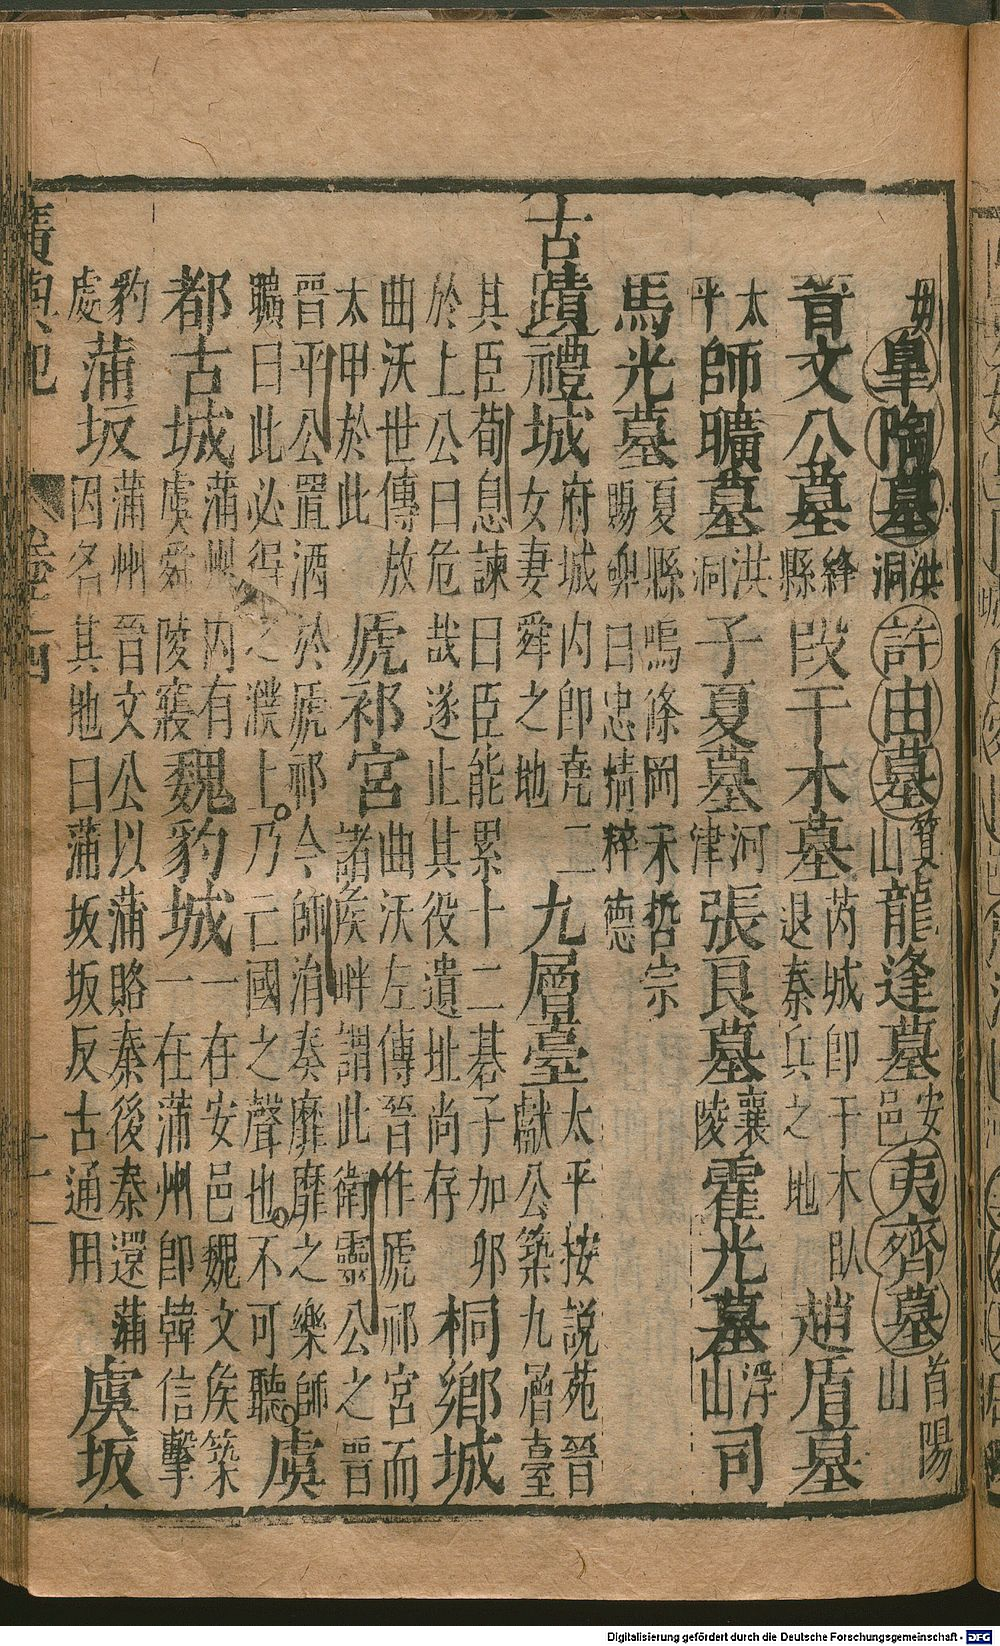 皐陶墓洪洞許由墓箕山龍逢墓安邑夷齊墓首陽山
晉文公墓絳縣段干木墓芮城即干木臥退秦兵之地趙盾墓
太平師曠墓洪洞子夏墓河津張良墓襄陵霍光墓浮山司
馬光墓夏縣鳴條岡宋哲宗賜碑曰忠精粹德
古蹟禮城府城內即堯二女妻舜之地九層臺太平按說苑晉獻公築九層臺
其臣荀息諫曰臣能累十二碁子加卵於上公曰危哉遂止其役遺址尚存桐鄉城
曲沃世傳放太甲於此虒祁宮曲沃左傳晉作虒祁宮而諸侯畔謂此衛靈公之晉
晉平公置酒於虒祁令師涓奏靡靡之樂師曠曰此必得之濮上乃亡國之聲也不可聽虞
都古城蒲州內有虞舜陵寢魏豹城一在安邑魏文侯築一在蒲州即韓信擊
豹處蒲坂蒲州晉文公以蒲賂秦後秦還蒲因名其地曰蒲坂坂反古通用虞坂
廣輿記 卷之四 十一
Digitalisierung gefördert durch die Deutsche Forschungsgemeinschaft - DFG